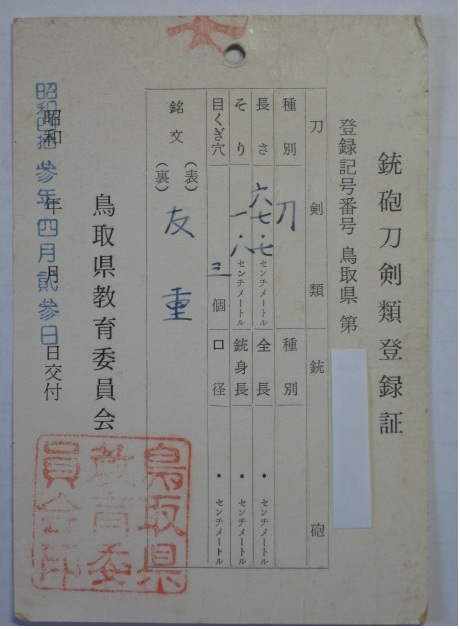 銃砲刀剣類登録証
登録記号番号 鳥取県 第
刀剣類 銃砲
種別 刀 種別
長さ 六七・七 センチメートル 全長 ・ センチメートル
そり 一・八 センチメートル 銃身長 ・ センチメートル
目くぎ穴 三 個 口径 ・ センチメートル
銘文 (表) 友重
(裏)
鳥取県教育委員会
昭和 年 月 日交付
昭和四拾參年四月貳參日
鳥取県
教育委
員会印